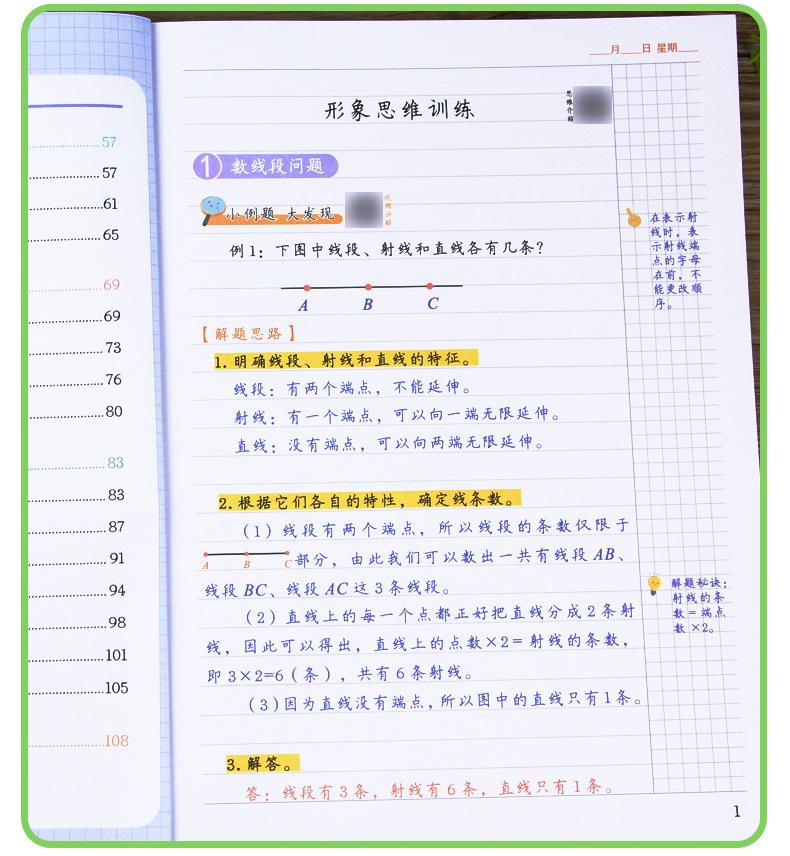 57
57
61
65
69
69
73
76
80
83
83
87
91
94
98
101
105
108
___月___日 星期___
形象思维训练
思维介绍
1 数线段问题
小例题 大发现
例1：下图中线段、射线和直线各有几条？
A B C
【解题思路】
1.明确线段、射线和直线的特征。
线段：有两个端点，不能延伸。
射线：有一个端点，可以向一端无限延伸。
直线：没有端点，可以向两端无限延伸。
2.根据它们各自的特性，确定线条数。
（1）线段有两个端点，所以线段的条数仅限于
A B C部分，由此我们可以数出一共有线段AB、
线段BC、线段AC这3条线段。
（2）直线上的每一个点都正好把直线分成2条射
线，因此可以得出，直线上的点数×2=射线的条数，
即3×2=6（条），共有6条射线。
（3）因为直线没有端点，所以图中的直线只有1条。
3.解答。
答：线段有3条，射线有6条，直线只有1条。
在表示射
线时，表
示射线端
点的字母
在前，不
能更改顺
序。
解题秘诀：
射线的条
数=端点
数×2。
1